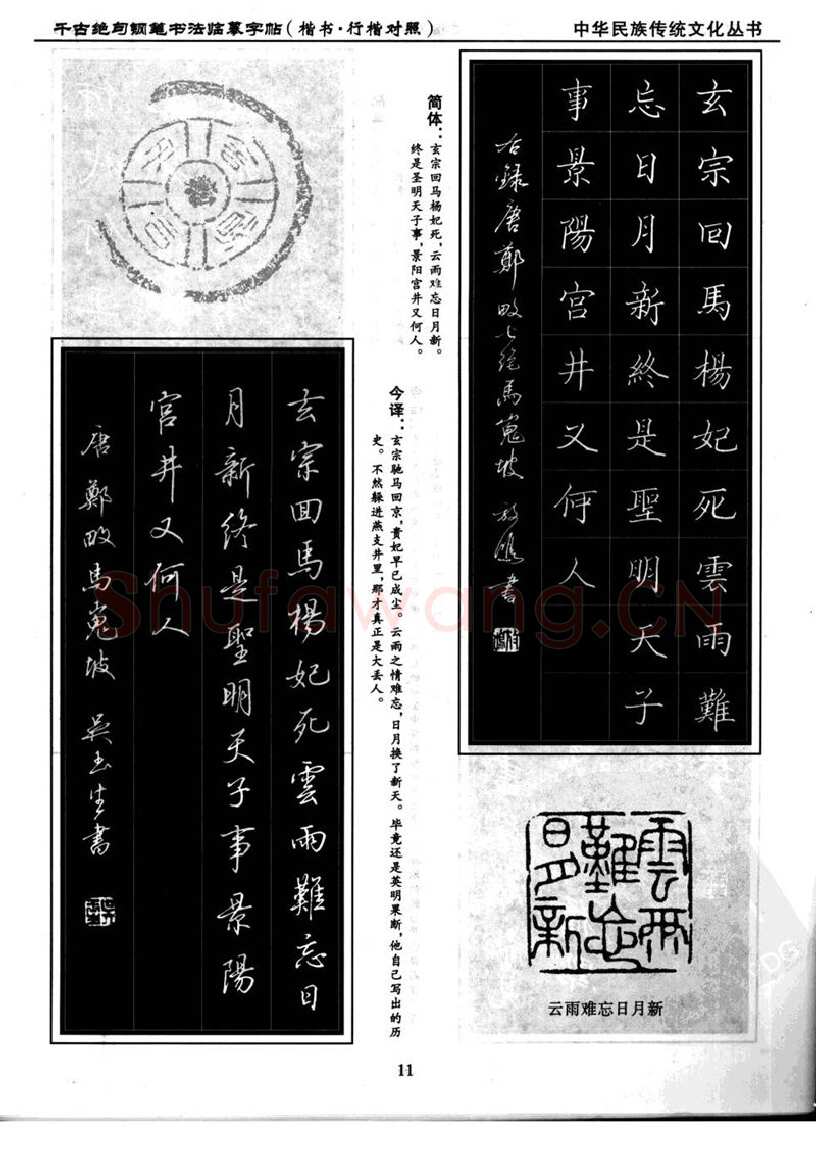 千古绝句钢笔书法临摹字帖(楷书·行楷对照)
中华民族传统文化丛书
玄宗回馬楊妃死雲雨難
忘日月新終是聖明天子
事景陽宮井又何人
右錄唐鄭畋七绝馬嵬坡
書
简体:玄宗回马杨妃死,云雨难忘日月新。
终是圣明天子事,景阳宫井又何人。
今译:玄宗驰马回京,贵妃早已成尘。云雨之情难忘,日月换了新天。毕竟还是英明果断,他自己写出的历
史。不然躲进燕支井里,那才真正是大丢人。
玄宗回馬楊妃死雲雨難忘日
月新终是聖明天子事景陽
宫井又何人
唐鄭畋馬嵬坡 吴玉生書
雲雨
難忘
日月新
云雨难忘日月新
11
Shufawang.CN